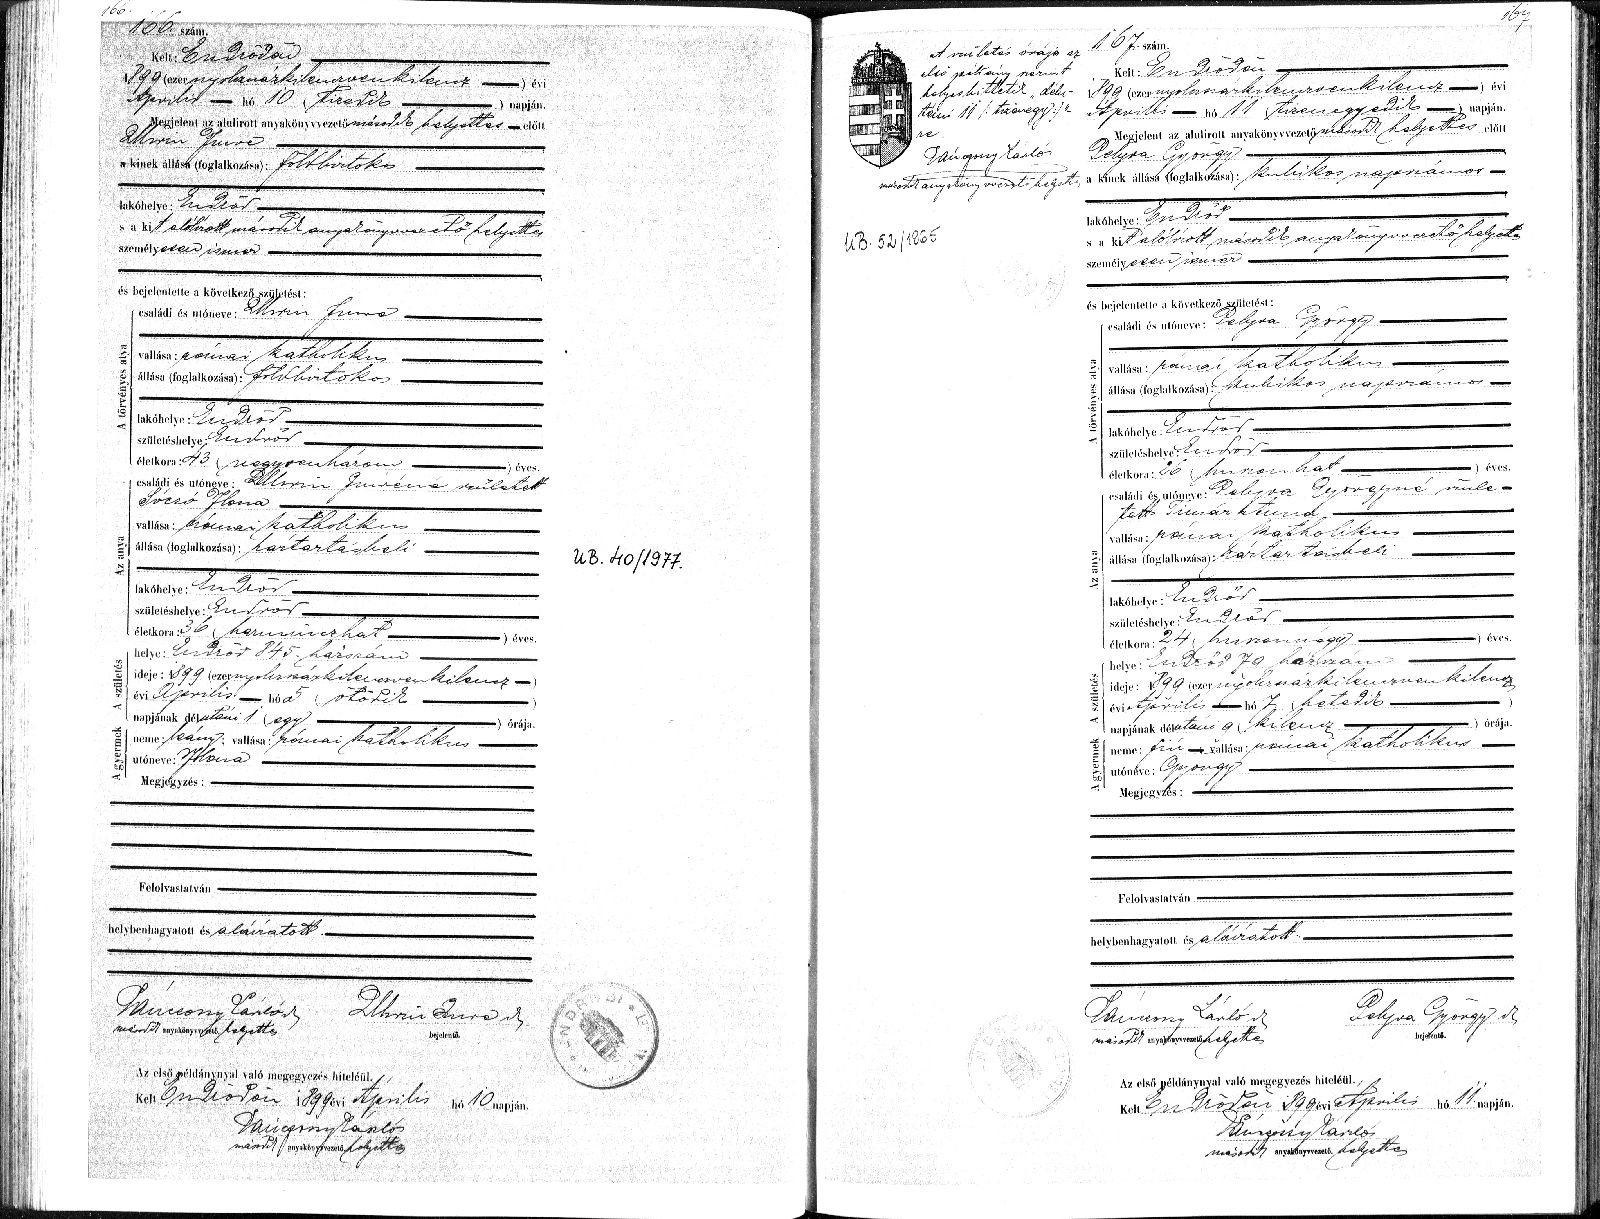 166.
166. szám.
Kelt: Endrődön
1899 (ezernyolczszázkilenczvenkilencz) évi
Április hó 10 (tizedik) napján.
Megjelent az alulirott anyakönyvvezető második helyettes előtt
Imre
a kinek állása (foglalkozása): földbirtokos
lakóhelye: Endrőd
s a kit alólirott második anyakönyvvezető helyettes
személyesen ismer
és bejelentette a következő születést:
A törvényes atya
családi és utóneve: Imre
vallása: római katholikus
állása (foglalkozása): földbirtokos
lakóhelye: Endrőd
születéshelye: Endrőd
életkora: 43 (negyvenhárom) éves.
Az anya
családi és utóneve: Imréné született
Sócsó Ilona
vallása: római katholikus
állása (foglalkozása): háztartásbeli
lakóhelye: Endrőd
születéshelye: Endrőd
életkora: 36 (harminczhat) éves.
A születés
helye: Endrőd 845. házszám
ideje: 1899 (ezernyolczszázkilenczvenkilencz)
évi Április hó 5 (ötödik)
napjának délutáni 1 (egy) órája.
A gyermek
neme: leány; vallása: római katholikus
utóneve: Ilona
Megjegyzés:
Felolvastatván
helybenhagyatott és aláiratott.
László
második anyakönyvvezető helyettes
Imre
bejelentő.
Az első példánynyal való megegyezés hiteléül.
Kelt Endrődön 1899 évi Április hó 10 napján.
László
második anyakönyvvezető helyettes
UB. 40/1977.
167
A születés órája az
első példány szerint
helyesbittetik, délu-
táni 11 (:tizenegy:) ó-
ra
László
második anyakönyvvezető helyettes
UB. 52/1865
167. szám.
Kelt: Endrődön
1899 (ezernyolczszázkilenczvenkilencz) évi
Április hó 11 (tizenegyedik) napján.
Megjelent az alulirott anyakönyvvezető második helyettes előtt
Pelyva György
a kinek állása (foglalkozása): kubikos napszámos
lakóhelye: Endrőd
s a kit alólirott második anyakönyvvezető helyettes
személyesen ismer
és bejelentette a következő születést:
A törvényes atya
családi és utóneve: Pelyva György
vallása: római katholikus
állása (foglalkozása): kubikos napszámos
lakóhelye: Endrőd
születéshelye: Endrőd
életkora: 26 (huszonhat) éves.
Az anya
családi és utóneve: Pelyva Györgyné szüle-
tett Timár
vallása: római katholikus
állása (foglalkozása): háztartásbeli
lakóhelye: Endrőd
születéshelye: Endrőd
életkora: 24 (huszonnégy) éves.
A születés
helye: Endrőd 79 házszám
ideje: 1899 (ezernyolczszázkilenczvenkilencz
évi Április hó 7 (hetedik)
napjának délutáni 9 (kilencz) órája.
A gyermek
neme: fiú; vallása: római katholikus
utóneve: György
Megjegyzés:
Felolvastatván
helybenhagyatott és aláiratott.
László
második anyakönyvvezető helyettes
Pelyva György
bejelentő.
Az első példánynyal való megegyezés hiteléül.
Kelt Endrődön 1899 évi Április hó 11 napján.
László
második anyakönyvvezető helyettes